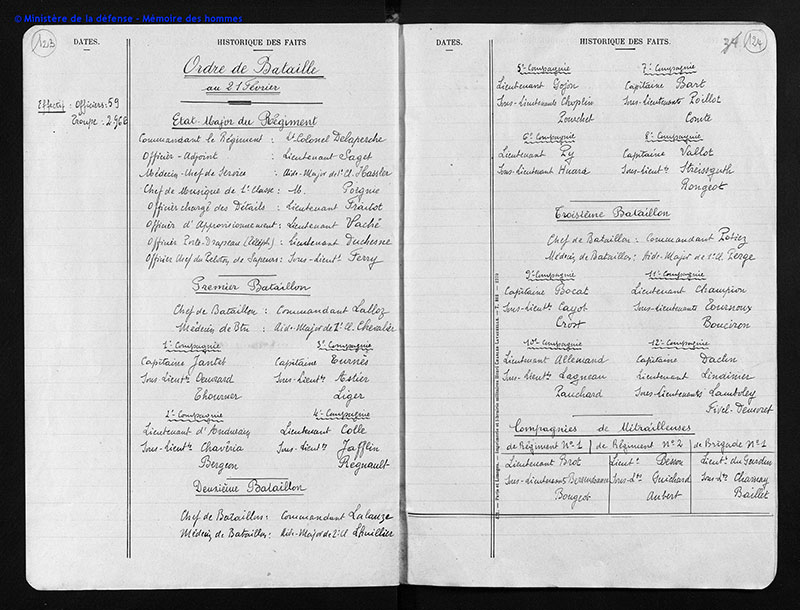 © Ministère de la défense - Mémoire des hommes
123
DATES.
HISTORIQUE DES FAITS
Ordre de Bataille
au 21 Février
Effectif : Officiers : 59
Troupe - 2.966
Etat-Major du Régiment
Commandant le Régiment : Lt Colonel Delaperche
Officier-Adjoint : Lieutenant Saget
Médecin-Chef de Service : Aide-Major de 1e Cl. Hassler
Chef de Musique de 1e Classe : M. Porgnie
Officier chargé des Détails : Lieutenant Frailot
Officier d'Approvisionnement : Lieutenant Vaché
Officier Porte-Drapeau (Téléph) : Lieutenant Duchesne
Officier Chef du Peloton de Sapeurs : Sous-Lieutt Ferry
Premier Bataillon
Chef de Bataillon : Commandant Lalloz
Médecin de Btn : Aide-Major de 1e Cl. Chevalier
1e Compagnie
Capitaine Jantet
Sous-Lieutts Oeuvrard
Thouvner
3e Compagnie
Capitaine Turnès
Sous-Lieutts Astier
Liger
2e Compagnie
Lieutenant d'Andurain
Sous-Lieutts Chavéria
Bergeon
4e Compagnie
Lieutenant Colle
Sous-Lieutt Jafflin
Regnault
Deuxième Bataillon
Chef de Bataillon : Commandant Lalauze
Médecin de Bataillon : Aide-Major de 2e Cl Lhuillier
DATES.
HISTORIQUE DES FAITS.
124
5e Compagnie
Lieutenant Gojon
Sous-Lieutenants Choplin
Pouchet
7e Compagnie
Capitaine Bart
Sous-Lieutenants Poillot
Comte
6e Compagnie
Lieutenant Py
Sous-Lieutenant Huard
8e Compagnie
Capitaine Vallot
Sous-Lieutts Streissguth
Rongeot
Troisième Bataillon
Chef de Bataillon : Commandant Potiez
Médecin de Bataillon : Aide-Major de 1e Cl. Perge
9e Compagnie
Capitaine Bocat
Sous-Lieutts Cayot
Crost
11e Compagnie
Lieutenant Champion
Sous-Lieutenants Tournoux
Bouveron
10e Compagnie
Lieutenant Allemand
Sous-Lieutts Lagneau
Panchard
12e Compagnie
Capitaine Daclin
Lieutenant Lindimer
Sous-Lieutenants Lamboley
Fivel-Demoret
Compagnies de Mitrailleuses
de Régiment No 1
de Régiment No 2
de Brigade No 1
Lieutenant Brot
Lieutt Besson
Lieutt du Gourdin
Sous-Lieutenants
Sous-Lts Guichard
Sous-Lts Charnay
Bongeot
Aubert
Baillet